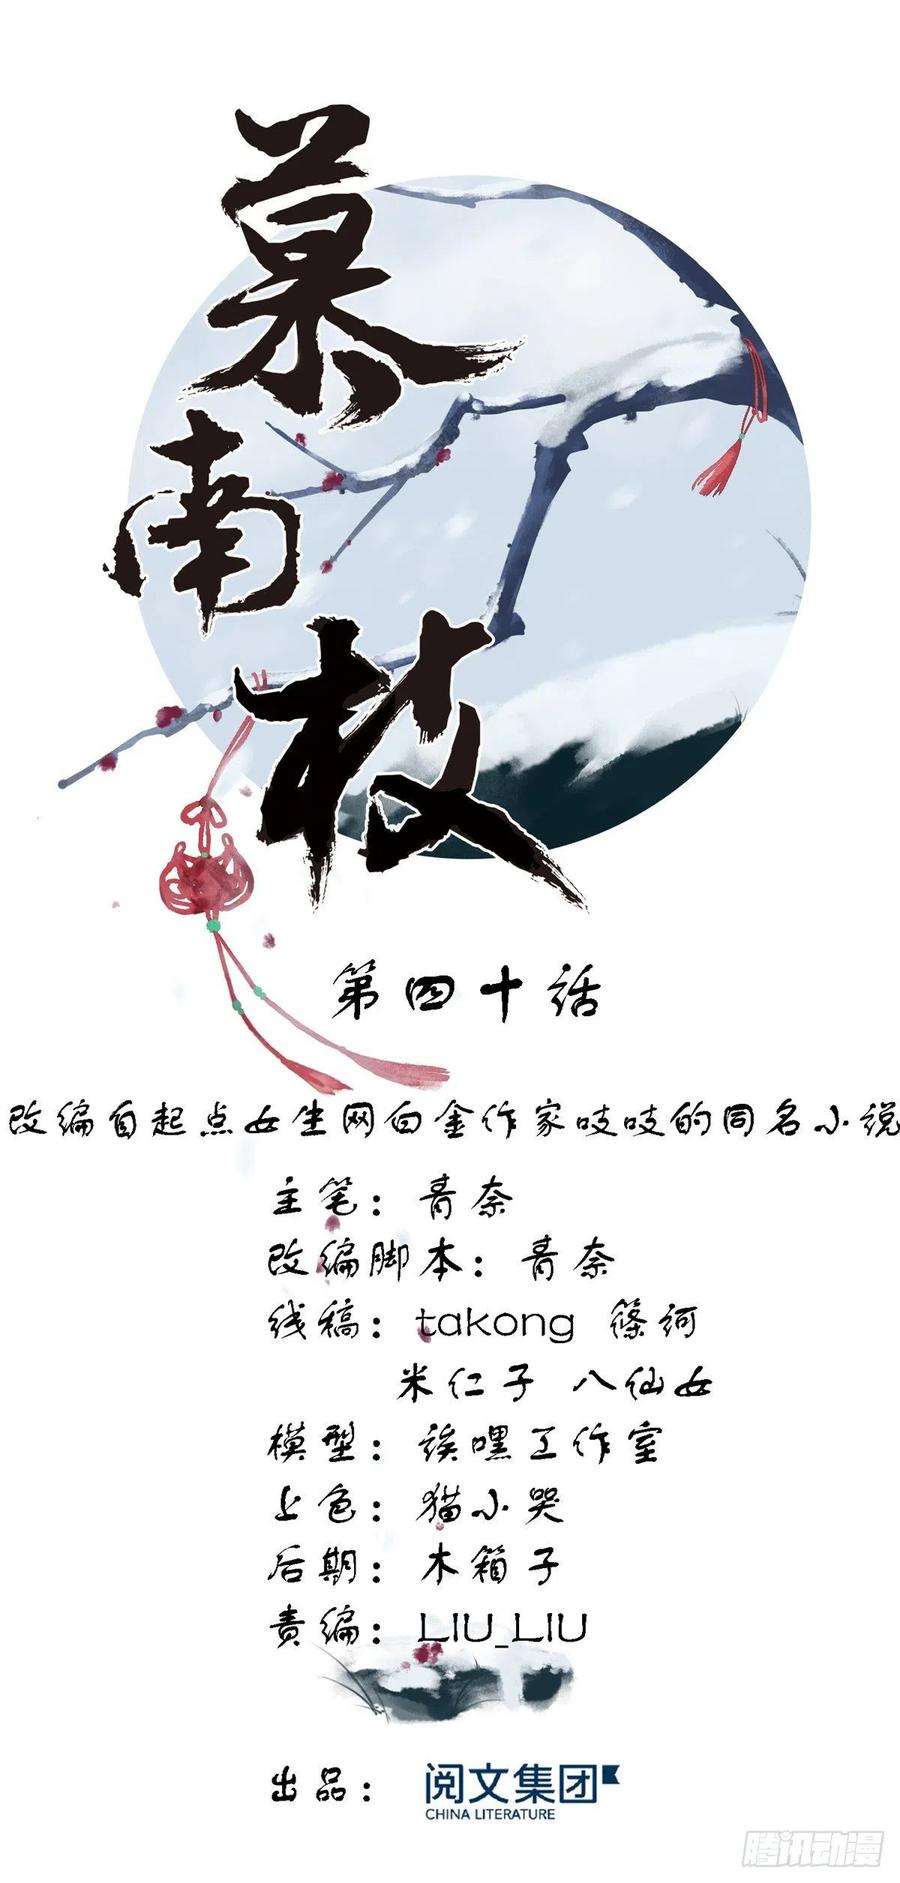 慕南枝
第四十话
改编自起点女生网白金作家吱吱的同名小说
主笔：青奈
改编脚本：青奈
线稿：takong 篠河
米仁子 八仙女
模型：诶嘿工作室
上色：猫小哭
后期：木箱子
责编：LIU_LIU
出品：阅文集团
CHINA LITERATURE
腾讯动漫